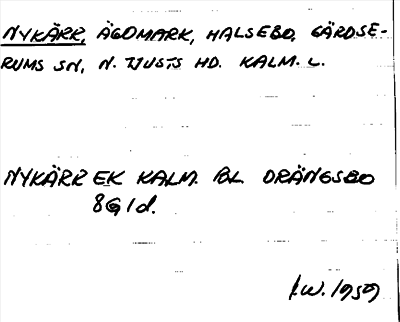 NYKÄRR, ÄGOMARK, HALSEBO, GÄRDSE-
RUMS SN, N. TJUSTS HD. KALM. L.
NYKÄRR EK KALM. BL. DRÄNGSBO
8G1d.
J.W. 1959